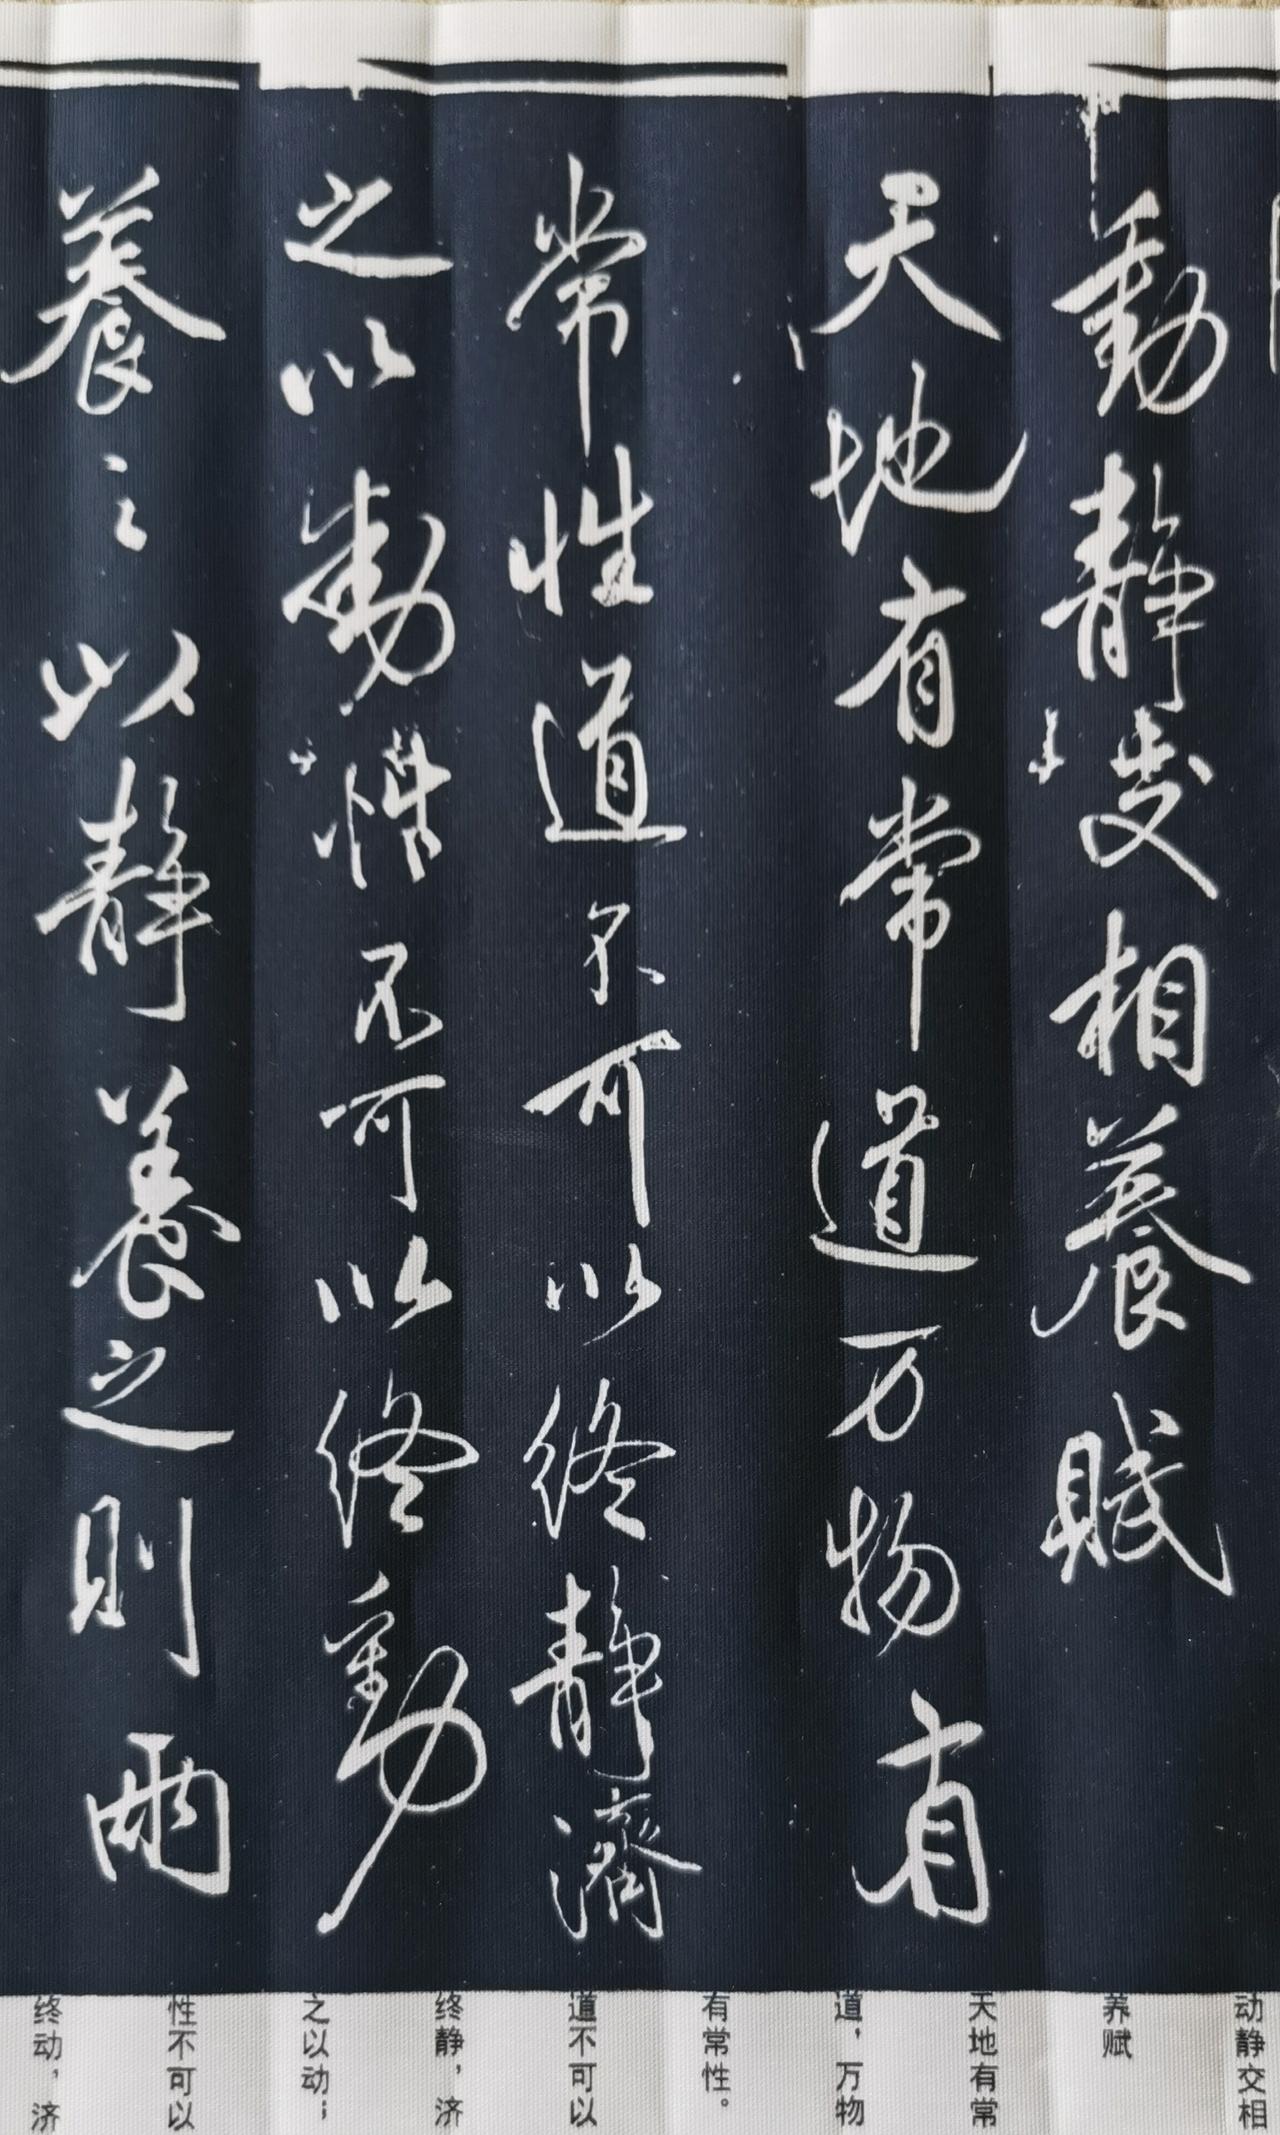 動静交相養賦
天地有常道万物有
常性道不可以終静濟
之以動性不可以終動
養之以静養之則兩
动静交相
养赋
天地有常
道，万物
有常性。
道不可以
终静，济
之以动；
性不可以
终动，济